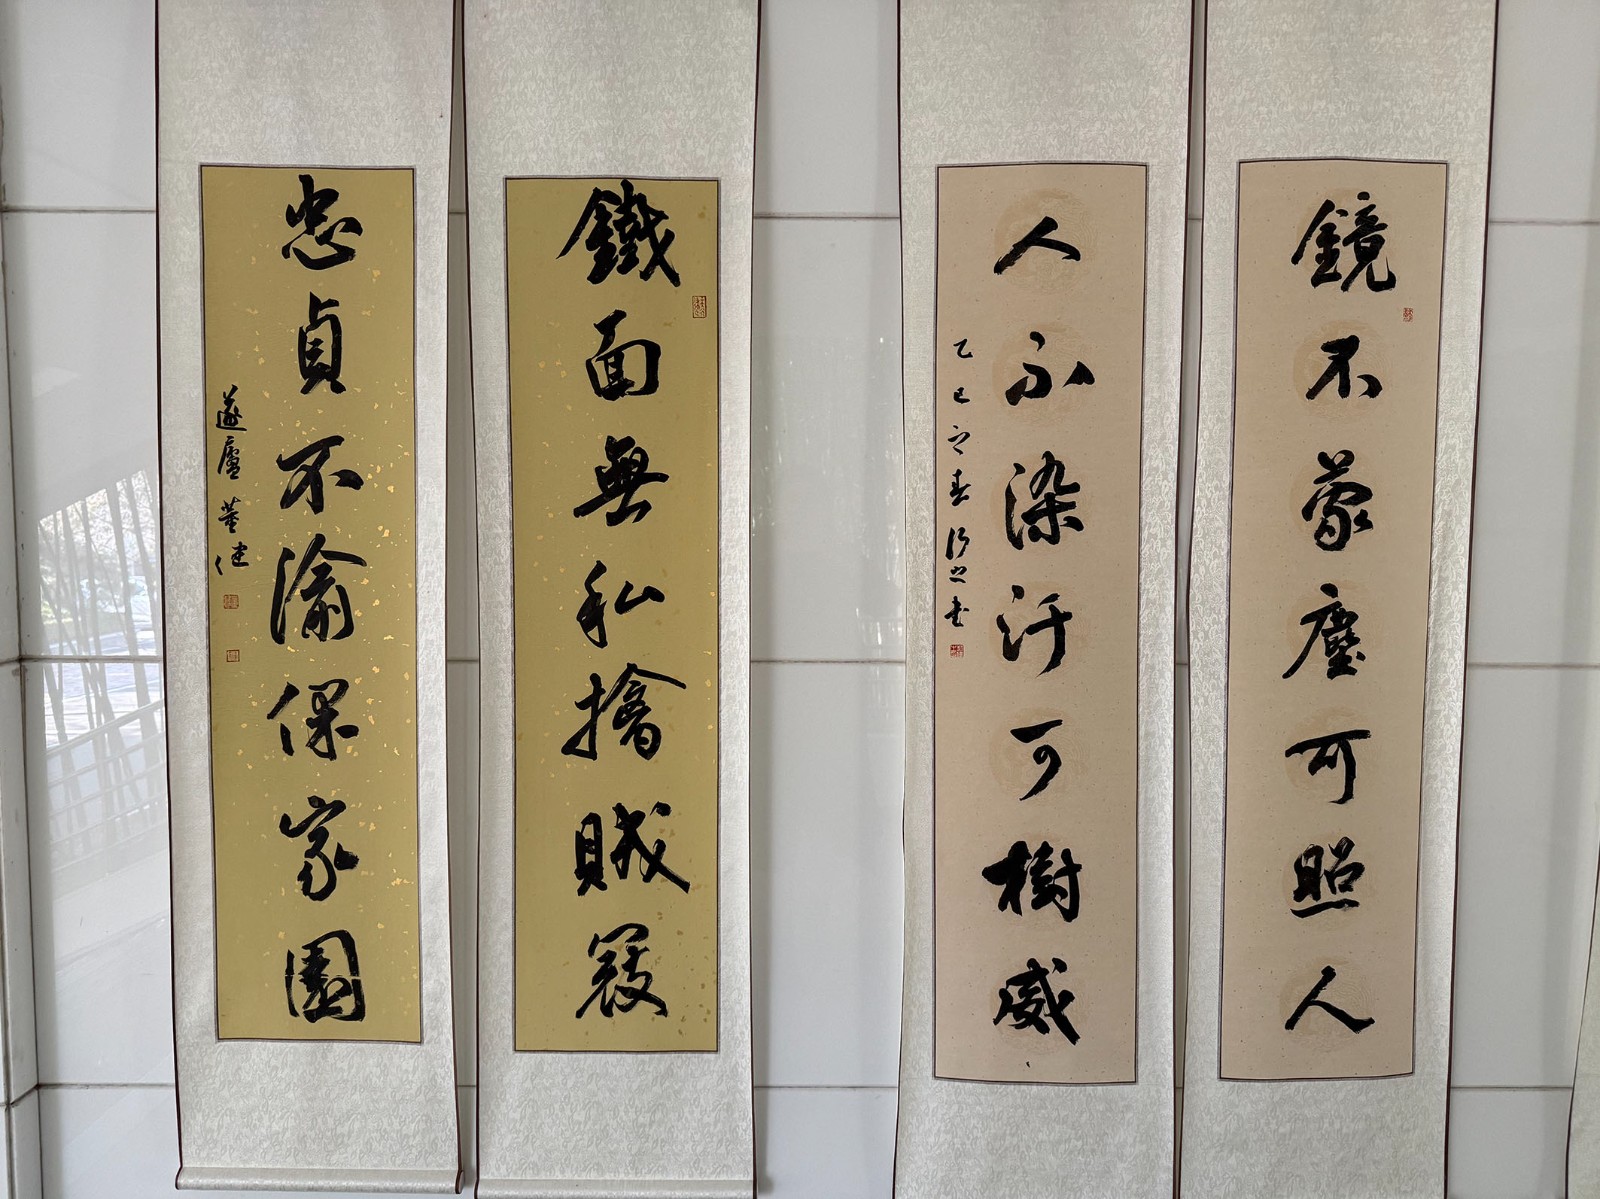 鏡不蒙塵可照人
人不染汙可樹威
乙巳之春
鐵面無私擒賊寇
忠貞不渝保家園
遂廬 董健